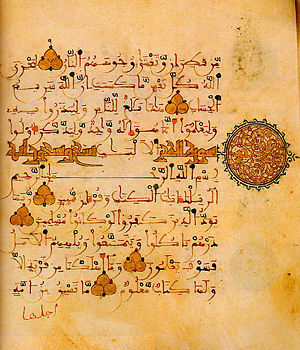 من قطران وتغشى وجوههم النار ليجزي
الله كل نفس ما كسبت إن الله سريع
الحساب هذا بلغ للناس ولينذروا به
وليعلموا أنما هو إله وحد وليذكر أولوا
الألبب
بسم الله الرحمن الرحيم
الر تلك ءايت الكتب وقرءان مبين ربما
يود الذين كفروا لو كانوا مسلمين
ذرهم يأكلوا ويتمتعوا ويلههم الأمل
فسوف يعلمون وما أهلكنا من قرية إلا
ولها كتاب معلوم ما تسبق من أمة
أجلها